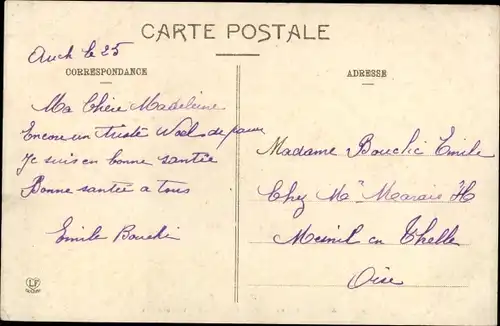 CARTE POSTALE
Auch le 25
CORRESPONDANCE
Ma Chère Madeleine
Encore un triste Noel de
Je suis en bonne santée
Bonne santée a tous
Emile
ADRESSE
Madame Emile
Chez Mr H
Mesnil en Thelle
Oise
LF